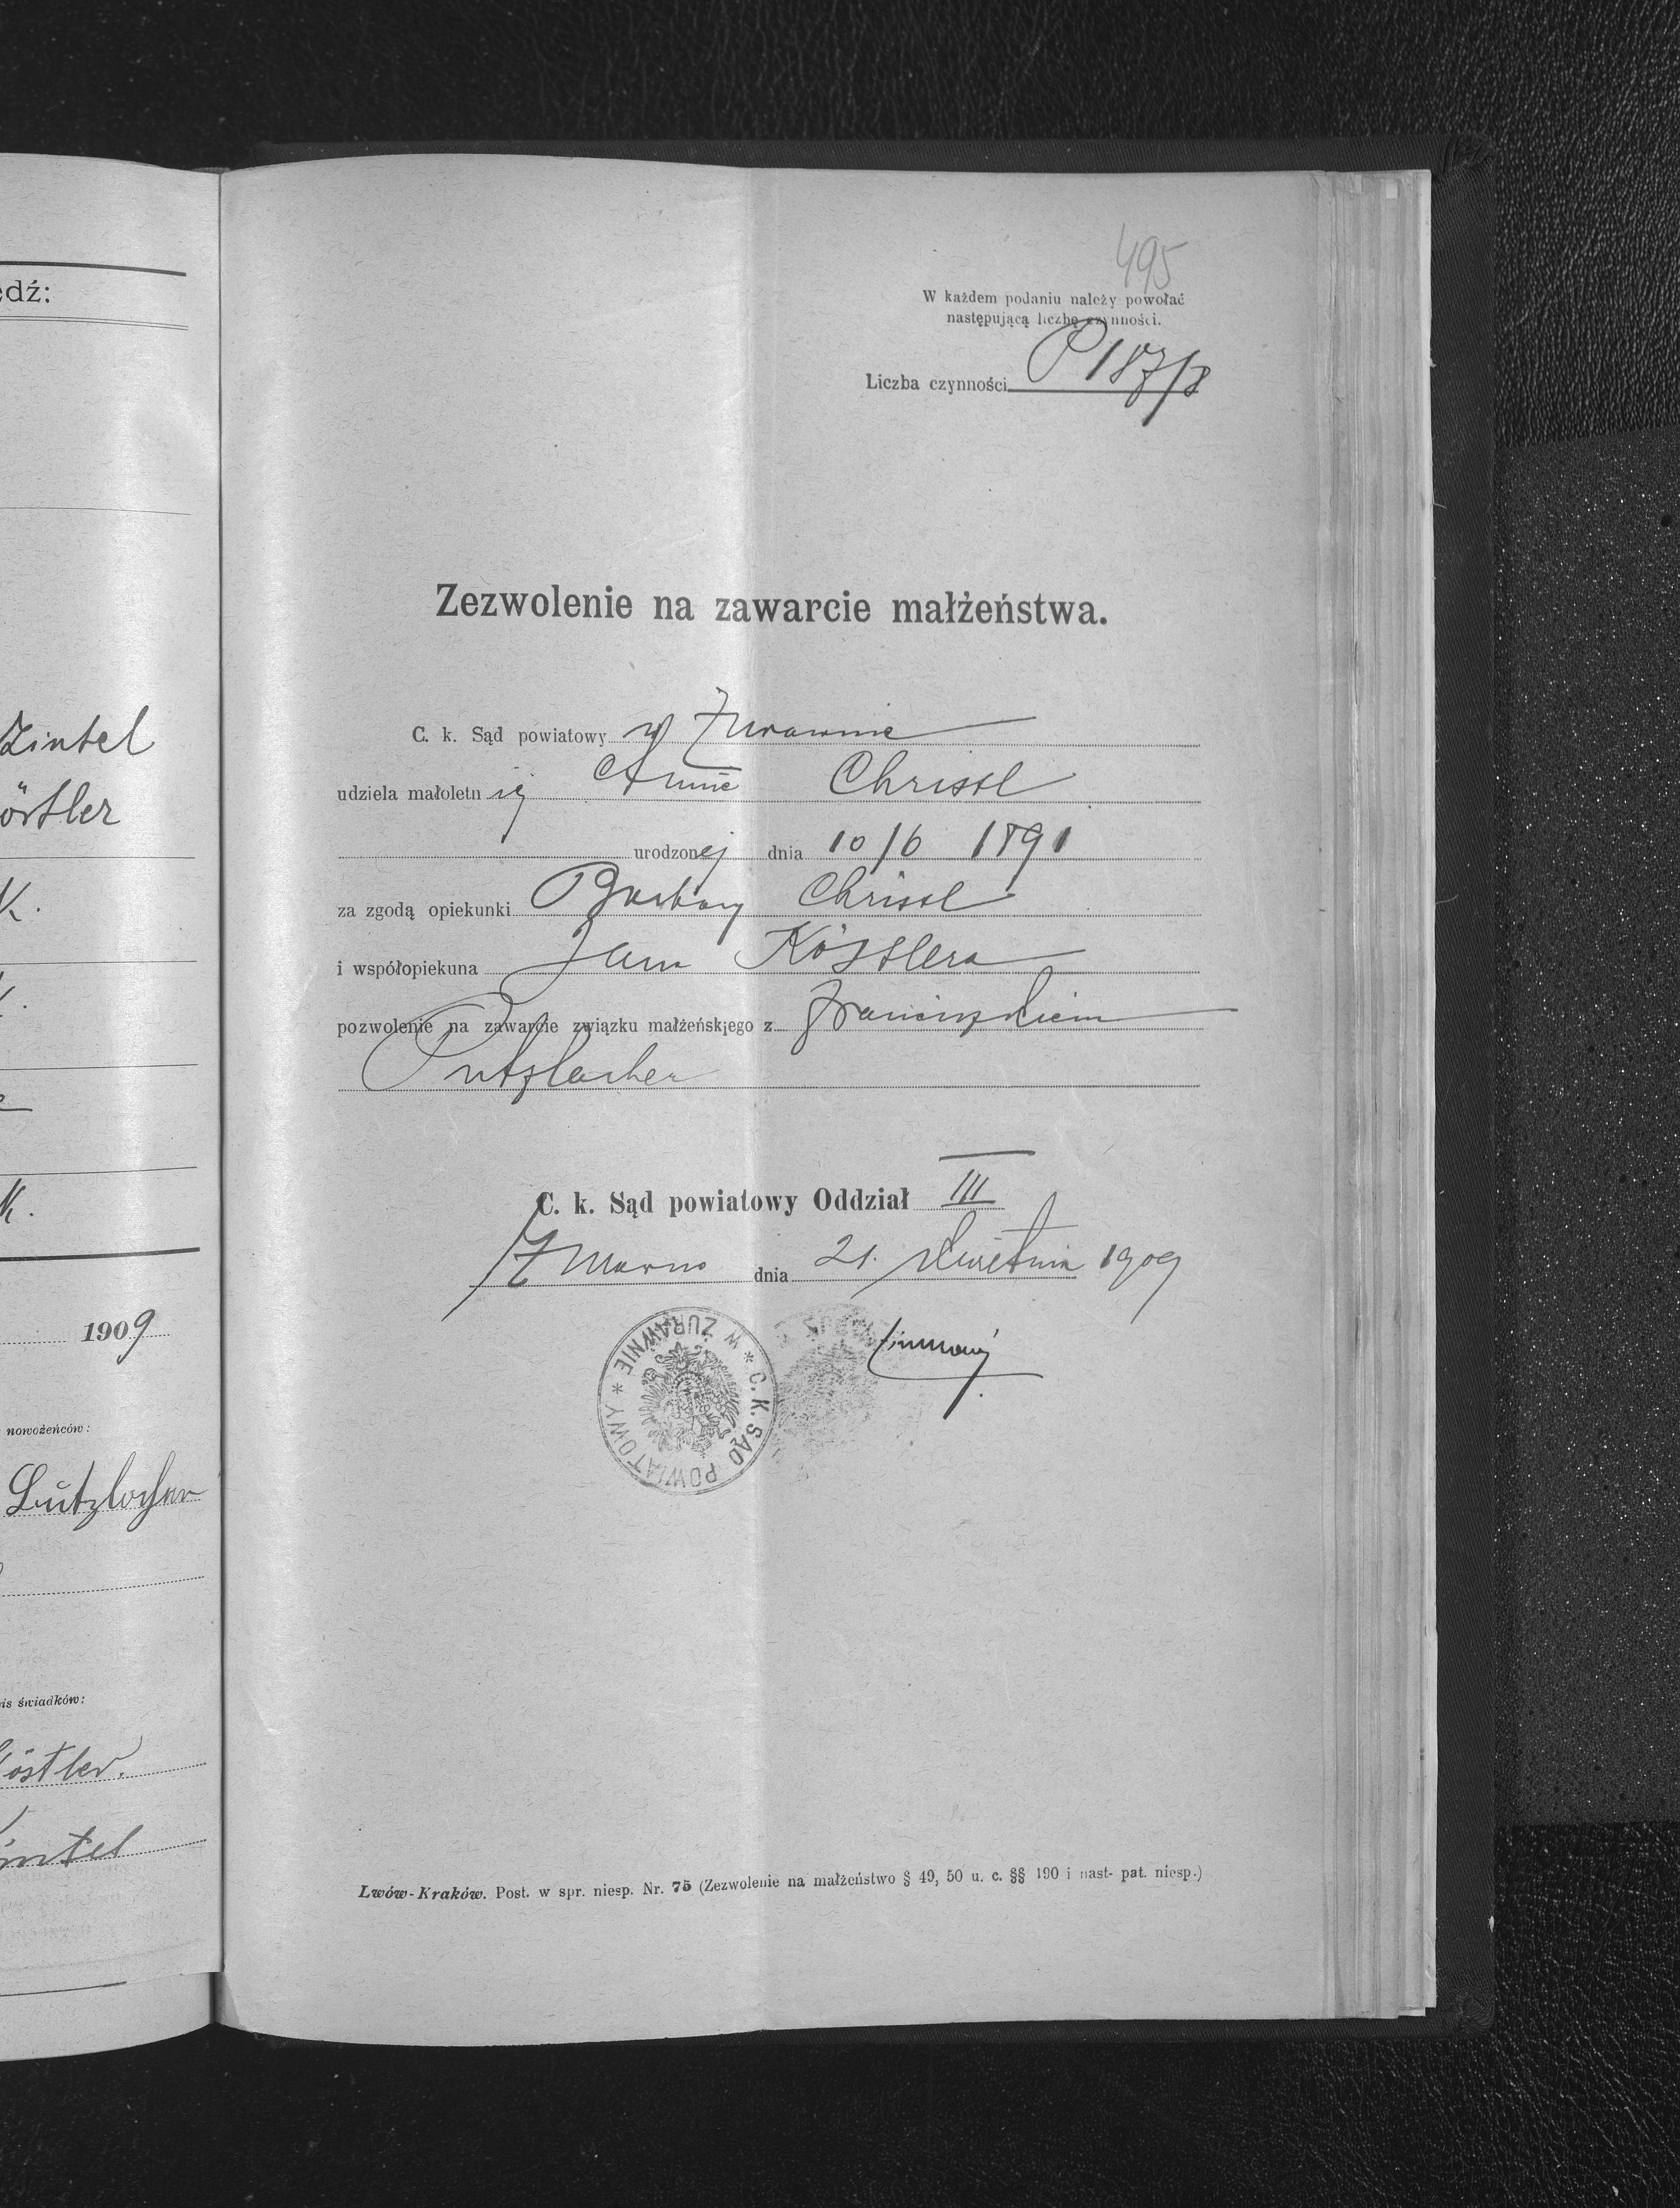 edź:
Zintel
östler
K.
K.
1909
nowożeńców:
Lutzlocher
is świadków:
östler.
intel
495
W każdem podaniu należy powołać
następującą liczbę czynności.
Liczba czynności P 187/8
Zezwolenie na zawarcie małżeństwa.
C. k. Sąd powiatowy w Żurawnie
udziela małoletniej Annie Christl
urodzonej dnia 10/6 1891
za zgodą opiekunki Barbary Christl
i współopiekuna Jana Kösslera
pozwolenie na zawarcie związku małżeńskiego z Franciszkiem
Putzlacher
C. k. Sąd powiatowy Oddział III
Żurawno dnia 21. Kwietnia 1909
* C. K. SĄD POWIATOWY * W ŻURAWNIE
Lwów-Kraków. Post. w spr. niesp. Nr. 75 (Zezwolenie na małżeństwo § 49, 50 u. c. §§ 190 i nast- pat. niesp.)